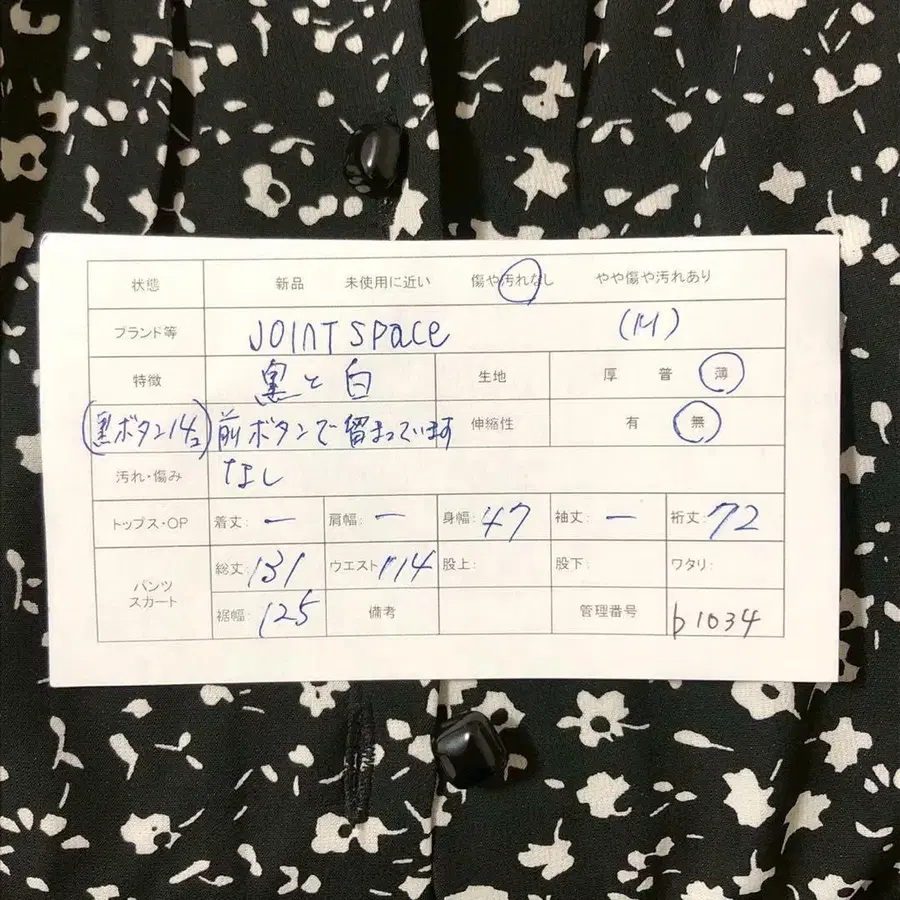 状態 新品 未使用に近い 傷や汚れなし やや傷や汚れあり
ブランド等 JOINT SPACE (M)
特徴 黒と白 生地 厚 普 薄
(黒ボタン14コ) 前ボタンで留まっています 伸縮性 有 無
汚れ・傷み なし
トップス・OP 着丈: ー 肩幅: ー 身幅: 47 袖丈: ー 裄丈: 72
パンツ スカート 総丈: 131 ウエスト 114 股上: 股下: ワタリ:
裾幅: 125 備考 管理番号 b1034